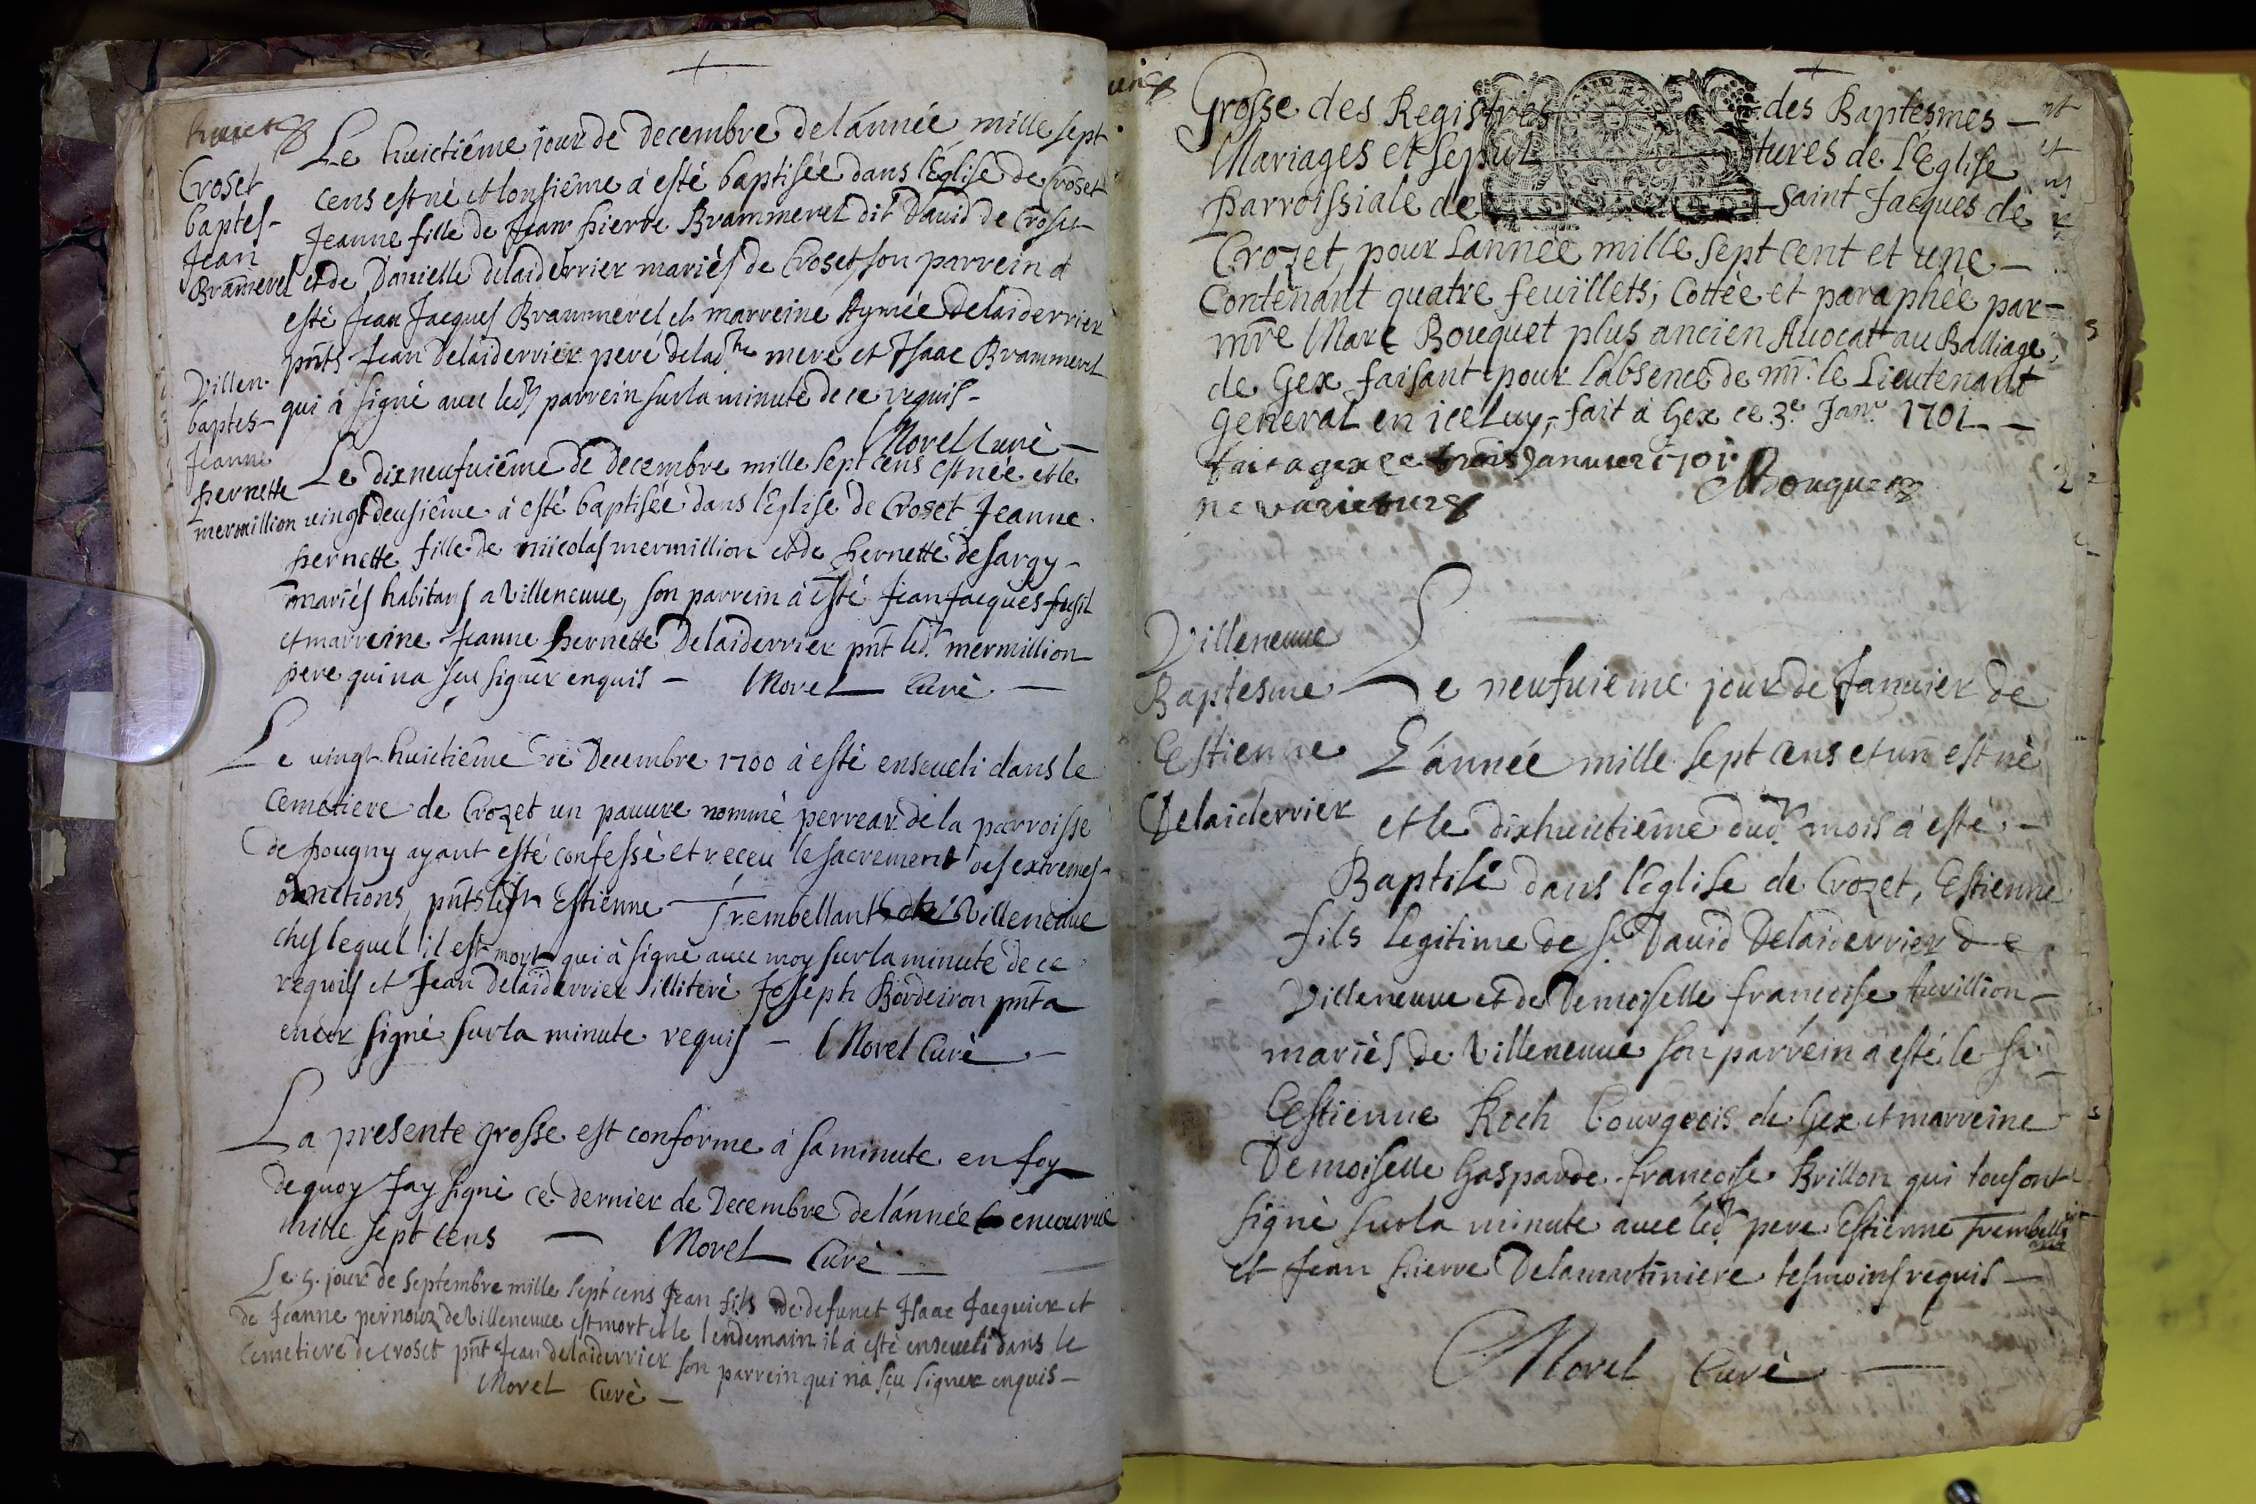 huict
Croset
baptes-
Jean
Brammerel
Le huictiême jour de decembre de l'année mille sept
cens est né et lonsiême à esté baptisée dans l'Eglise de Croset
Jeanne fille de Jean pierre Brammerel dit David de Croset
et de Danielle delaiderrier mariés de Croset son parrein a
esté Jean Jacques Brammerel et marreine Aymée Delaiderrier
pnts Jean Delaiderrier peré de lad.te mere et Isaac Brammerel
qui à signé avec led parrein sur la minute de ce requis -
Morel Curè -
Villen.
baptes-
Jeanne
pernette
mermillion
Le dixneufuiême de decembre mille sept cens est née et le
vingt deusiême à esté baptisée dans l'Eglise de Croset Jeanne
pernette fille de niicolas mermillion et de pernette desargy -
mariés habitans a Villeneuue, son parrein à esté Jean Jacques fusil
et marreine Jeanne pernette Delaiderrier pnt led. mermillion
pere qui na sceu signer enquis - Morel Curè -
Le vingt huictiême de Decembre 1700 à esté enseueli dans le
Cemetiere de Crozet un pauure nommé perrear de la parroisse
de pougny ayant esté confessé et receu le sacrement des extremes-
onctions, pnts Estienne Trembellant de Villeneuue
ches lequel il est mort qui à signé auec moy sur la minute de ce
requis et Jean Delaiderrier illiteré Joseph Bordeiron pnt a
encor signé sur la minute requis - Morel Curè -
La presente grosse est conforme à sa minute en foy
de quoy Jay signé ce dernier de Decembre de l'année
mille sept cens - Morel Curè -
Le 5. jour de Septembre mille sept cens Jean fils de defunct Isaac Jacquier et
de Jeanne pernoux de Villeneuue est mort et le lendemain il à esté enseueli dans le
Cemetiere de croset pnt Jean delaiderrier son parrein qui nà sçu signer enquis -
Morel Curè -
Grosse des Registres des Baptesmes -
Mariages et sepultures de L'Eglise
parroissiale de Saint Jacques de
Crozet, pour L'année mille sept cent et une -
Contenant quatre feuillets, Cottée et paraphée par -
mre Marc Bouquet plus ancien Auocat au Balliage
de Gex faisant pour l'absence de mr. le Lieutenant
general en iceluy, fait à Gex ce 3e Janu 1701 -
fait a gex ce trois Januier 1701
ne varietur
MBouquet
Villeneuue
Baptesme
Estienne
Delaiderrier
Le neufuieme jour de Januier de
L'année mille sept cens et un est né
et le dixhuictiême dud. mois à esté -
Baptisé dans l'Eglise de Crozet, Estienne
fils legitime de sr. Dauid Delaiderrier de
Villeneuue et de Demoiselle francoise turillion -
mariés de Villeneuue son parrein à esté le sr
Estienne Roch bourgeois de Gex et marreine
Demoiselle Gasparde francoise Brillon qui tous ont
signé sur la minute auec led. pere Estienne Trembellant
et Jean pierre Delamartiniere tesmoins requis -
Morel Curè -